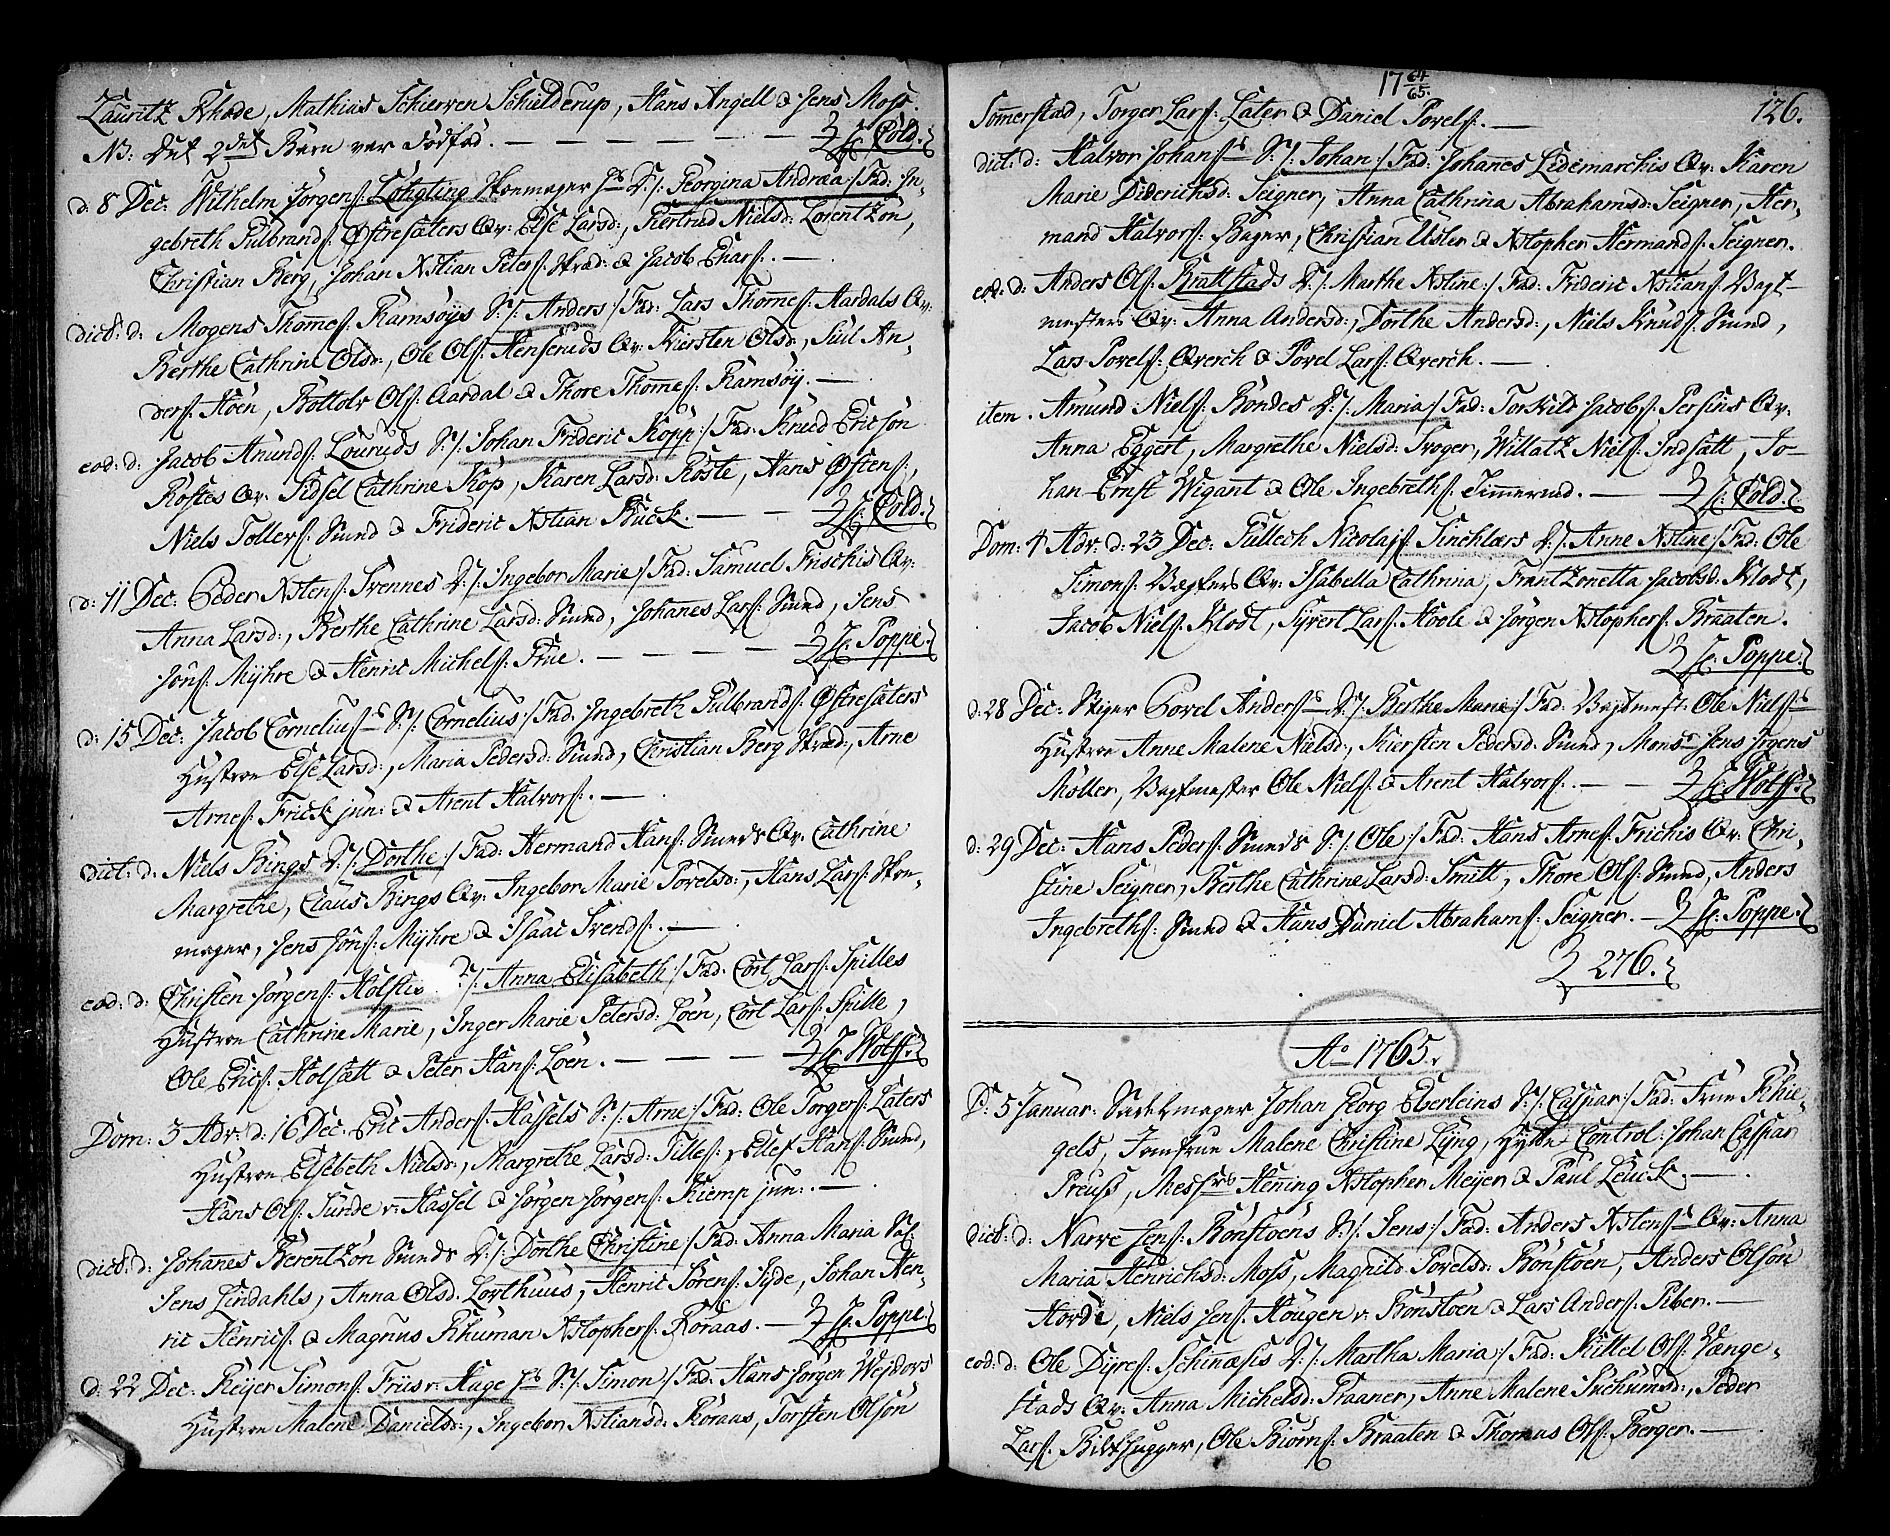 Lauritz Rhode, Mathias Schierven Schielderup, Hans Angell & Jens Moss.
NB: Det 2det Barn var dødfød. — — — — — H: Cold.
d: 8 Dec: Wilhelm Jørgens: Skomager D./: Georgina Andrea :/ Fad: In-
gebreth Gulbrands: Østresæters Qv: Else Larsd:, Giertrud Nielsd: Lorentzon,
Christian Berg, Johan Xstian Peters: & Jacob Chars: —
dict: d: Mogens Thomes: Ramsøys S./: Anders :/ Fad: Lars Thomes: Aardals Qv:
Berthe Cathrine Olsd:, Ole Ols: Henseruds Qv: Kiersten Olsd:, Juul An-
ders: Hoen, Bottolv Ols: Aardal & Thore Thomes: Ramsøy. —
eod: d: Jacob Anunds: Louruds S./: Johan Frideric Kopp :/ Fad: Knud Ericson
Rostes Qv: Sidsel Cathrine Kop, Karen Larsd: Roste, Hans Østens:,
Niels Tollers: Smed & Frideric Xstian Buck. — — H: Cold.
d: 11 Dec: Peder Xstens: Svennes D./: Ingebor Marie :/ Fad: Samuel Frischis Qv:
Anna Larsd:, Berthe Cathrine Larsd: Smed, Johanes Lars: Smed, Jens
Jons: Myhre & Henric Michels: Frue. — — — — H: Poppe.
d: 15 Dec: Jacob Corneliuss: S./: Cornelius :/ Fad: Ingebreth Gulbrands: Østresæters
Hustroe Else Larsd:, Maria Pedersd: Smed, Christian Berg Skræd:, Arne
Arnes: Frick jun: & Arent Halvors: —
dict: d: Niels Bings D./: Dorthe :/ Fad: Hermand Hans: Smeds Qv: Cathrine
Margrethe, Claus Bings Qv: Ingebor Marie Povelsd:, Hans Lars: Sko-
mager, Jens Jons: Myhre & Isaac Svends: —
eod: d: Christen Jørgens: Holstis D./: Anna Elisabeth :/ Fad: Cort Lars: Spilles
Hustroe Cathrine Marie, Inger Marie Petersd: Loen, Cort Lars: Spille,
Ole Erics: Holsætt & Peter Hans: Loen. — — — H: Wolff.
Dom: 3 Adv: d: 16 Dec. Eric Anders: Hassels S./: Arne :/ Fad: Ole Torgers: Laters
Hustroe Elsebeth Nielsd:, Margrethe Larsd: Edlef Hans: Smed,
Hans Ols: Sunde v: Hassel & Jørgen Jørgens: Kiemp jun: —
dict: d: Johanes Berentzon Smeds D./: Dorthe Christine :/ Fad: Anna Maria Sal.
Jens Lindahls, Anna Olsd: Lorthuus, Henric Sørens: Syde, Johan Hen-
ric Henrics: & Magnus Schuman Xstophers: Koraas. — H: Poppe.
d: 22 Dec: Reyer Simons: Friis v: Hage S./: Simon :/ Fad: Hans Jørgen Wejdors
Hustroe Malene Danielsd:, Ingebor Xstiansd: Koraas, Torsten Olsøn
17 64/65.
126.
Somerstad, Torger Lars: Later & Daniel Povels: —
dict: d: Halvor Johans: S./: Johan :/ Fad: Johanes Lidemarchis Qv: Karen
Marie Diderichsd: Seigner, Anna Cathrina Abrahamsd: Seigner, Her-
mand Halvors: Bager, Christian Usler & Xstopher Hermands: Seigner.
eod: d: Anders Ols: Brattstads D./: Marthe Xstine :/ Fad: Frideric Xstians: Vagt-
mesters Qv: Anna Andersd:, Dorthe Andersd:, Niels Knuds: Smed,
Lars Povels: Qverch & Povel Lars: Qverch. —
item. Amund Niels: Bondes D./: Maria :/ Fad: Torkild Jacobs: Persius Qv:
Anna Eggert, Margrethe Nielsd: Troger, Willatz Niels: Indsætt, Jo-
han Ernst Wigant & Ole Ingebreths: Simerud. — H: Cold.
Dom: 4 Adv: d: 23 Dec: Tullech Nicolajs: Sinchlars D./: Anne Xstine :/ Fad: Ole
Simons: Vegters Qv: Isabella Cathrina, Frantzonetta Jacobsd: Klodt,
Jacob Niels: Klodt, Syvert Lars: Hoole & Jørgen Xstophers: Braaten.
H: Poppe.
d: 28 Dec: Stiger Povel Anders: D./: Berthe Marie :/ Fad: Vagtmest: Ole Niels:
Hustroe Anne Malene Nielsd:, Kiersten Pedersd: Smed, Monsr Jens Irgens
Møller, Vagtmester Ole Niels: & Arent Halvors: — — H: Wolff.
d: 29 Dec: Hans Peders: Smeds S./: Ole :/ Fad: Hans Arnes: Frichis Qv: Chri-
stine Seigner, Berthe Cathrine Larsd: Smitt, Thore Ols: Smed, Anders
Ingebreths: Smed & Hans Daniel Abrahams: Seigner. — H: Poppe.
276.
Ao 1765.
D: 5 Januar: Sadelmager Johan Georg Eberleins S./: Caspar :/ Fad: Frue Schie-
gels, Jomfrue Malene Christine Lyng, Hytte Control: Johan Caspar
Preuss, Messrs Hening Xstopher Meyer & Paul Leuck. —
dict: d: Narve Jens: Bonstoens S./: Jens :/ Fad: Anders Xstens: Qv: Anna
Maria Henrichsd: Moss, Magnild Povelsd: Bonstoen, Anders Olsøn
Horde, Niels Jens: Hougen v: Bonstoen & Lars Anders: Piber. —
eod: d: Ole Dyres: Schinæsis D./: Martha Maria :/ Fad: Kittel Ols: Vange-
stads Qv: Anna Michelsd: Praaner, Anne Malene Peder
Lars: Bilthugger, Ole Biørns: Braaten & Thomas Ols: Berger. —